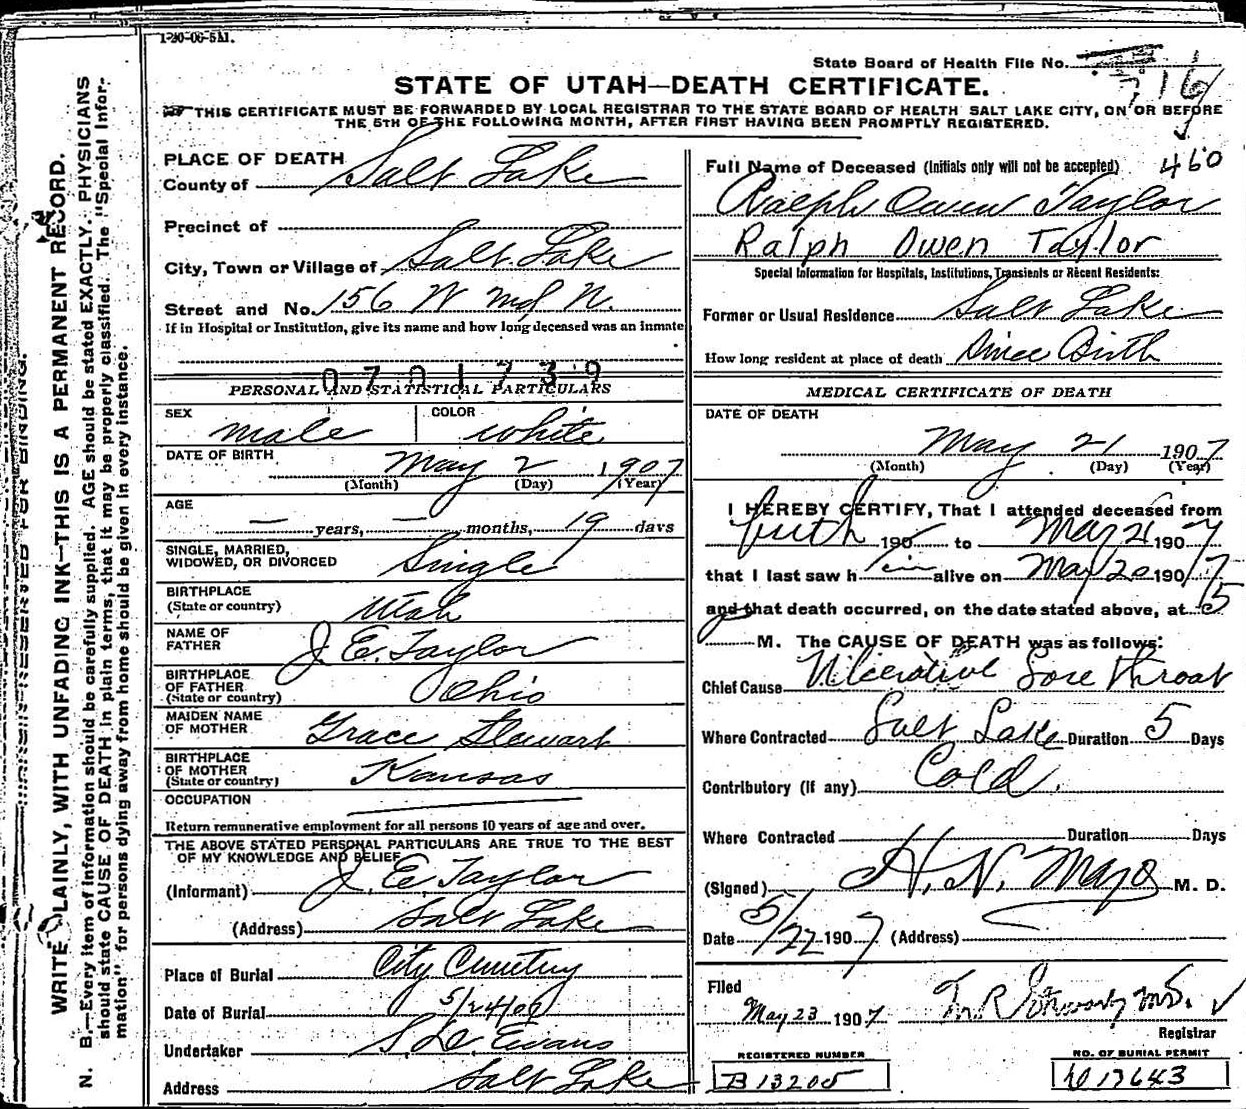 1-20-06-5M.
State Board of Health File No. 716
STATE OF UTAH—DEATH CERTIFICATE.
THIS CERTIFICATE MUST BE FORWARDED BY LOCAL REGISTRAR TO THE STATE BOARD OF HEALTH SALT LAKE CITY, ON OR BEFORE
THE 5TH OF THE FOLLOWING MONTH, AFTER FIRST HAVING BEEN PROMPTLY REGISTERED.
PLACE OF DEATH
County of Salt Lake
Precinct of
City, Town or Village of Salt Lake
Street and No. 156 W N.
If in Hospital or Institution, give its name and how long deceased was an inmate
0701739
PERSONAL AND STATISTICAL PARTICULARS
SEX male
COLOR white
DATE OF BIRTH May 2 1907
(Month) (Day) (Year)
AGE
— years, — months, 19 days
SINGLE, MARRIED,
WIDOWED, OR DIVORCED Single
BIRTHPLACE
(State or country) Utah
NAME OF
FATHER J. E. Taylor
BIRTHPLACE
OF FATHER
(State or country) Ohio
MAIDEN NAME
OF MOTHER Grace Stewart
BIRTHPLACE
OF MOTHER
(State or country) Kansas
OCCUPATION
Return remunerative employment for all persons 10 years of age and over.
THE ABOVE STATED PERSONAL PARTICULARS ARE TRUE TO THE BEST
OF MY KNOWLEDGE AND BELIEF
(Informant) J. E. Taylor
(Address) Salt Lake
Place of Burial City Cemetry
Date of Burial 5/24/07
Undertaker Evans
Address Salt Lake
Full Name of Deceased (Initials only will not be accepted) 460
Ralph Owen Taylor
Ralph Owen Taylor
Special Information for Hospitals, Institutions, Transients or Recent Residents:
Former or Usual Residence Salt Lake
How long resident at place of death Since Birth
MEDICAL CERTIFICATE OF DEATH
DATE OF DEATH
May 21 1907
(Month) (Day) (Year)
I HEREBY CERTIFY, That I attended deceased from
birth 190 to May 21 1907
that I last saw him alive on May 20 1907
and that death occurred, on the date stated above, at 5
M. The CAUSE OF DEATH was as follows:
Chief Cause Ulcerative Sore Throat
Where Contracted Salt Lake Duration 5 Days
Contributory (If any) Cold.
Where Contracted Duration Days
(Signed) H. N. Mayo M. D.
Date 5/22 1907 (Address)
Filed
May 23 1907
Registrar
REGISTERED NUMBER
B 13205
NO. OF BURIAL PERMIT
13643
MARGIN RESERVED FOR BINDING.
WRITE PLAINLY, WITH UNFADING INK—THIS IS A PERMANENT RECORD.
N. B.—Every item of information should be carefully supplied. AGE should be stated EXACTLY. PHYSICIANS
should state CAUSE OF DEATH in plain terms, that it may be properly classified. The "Special Infor-
mation" for persons dying away from home should be given in every instance.